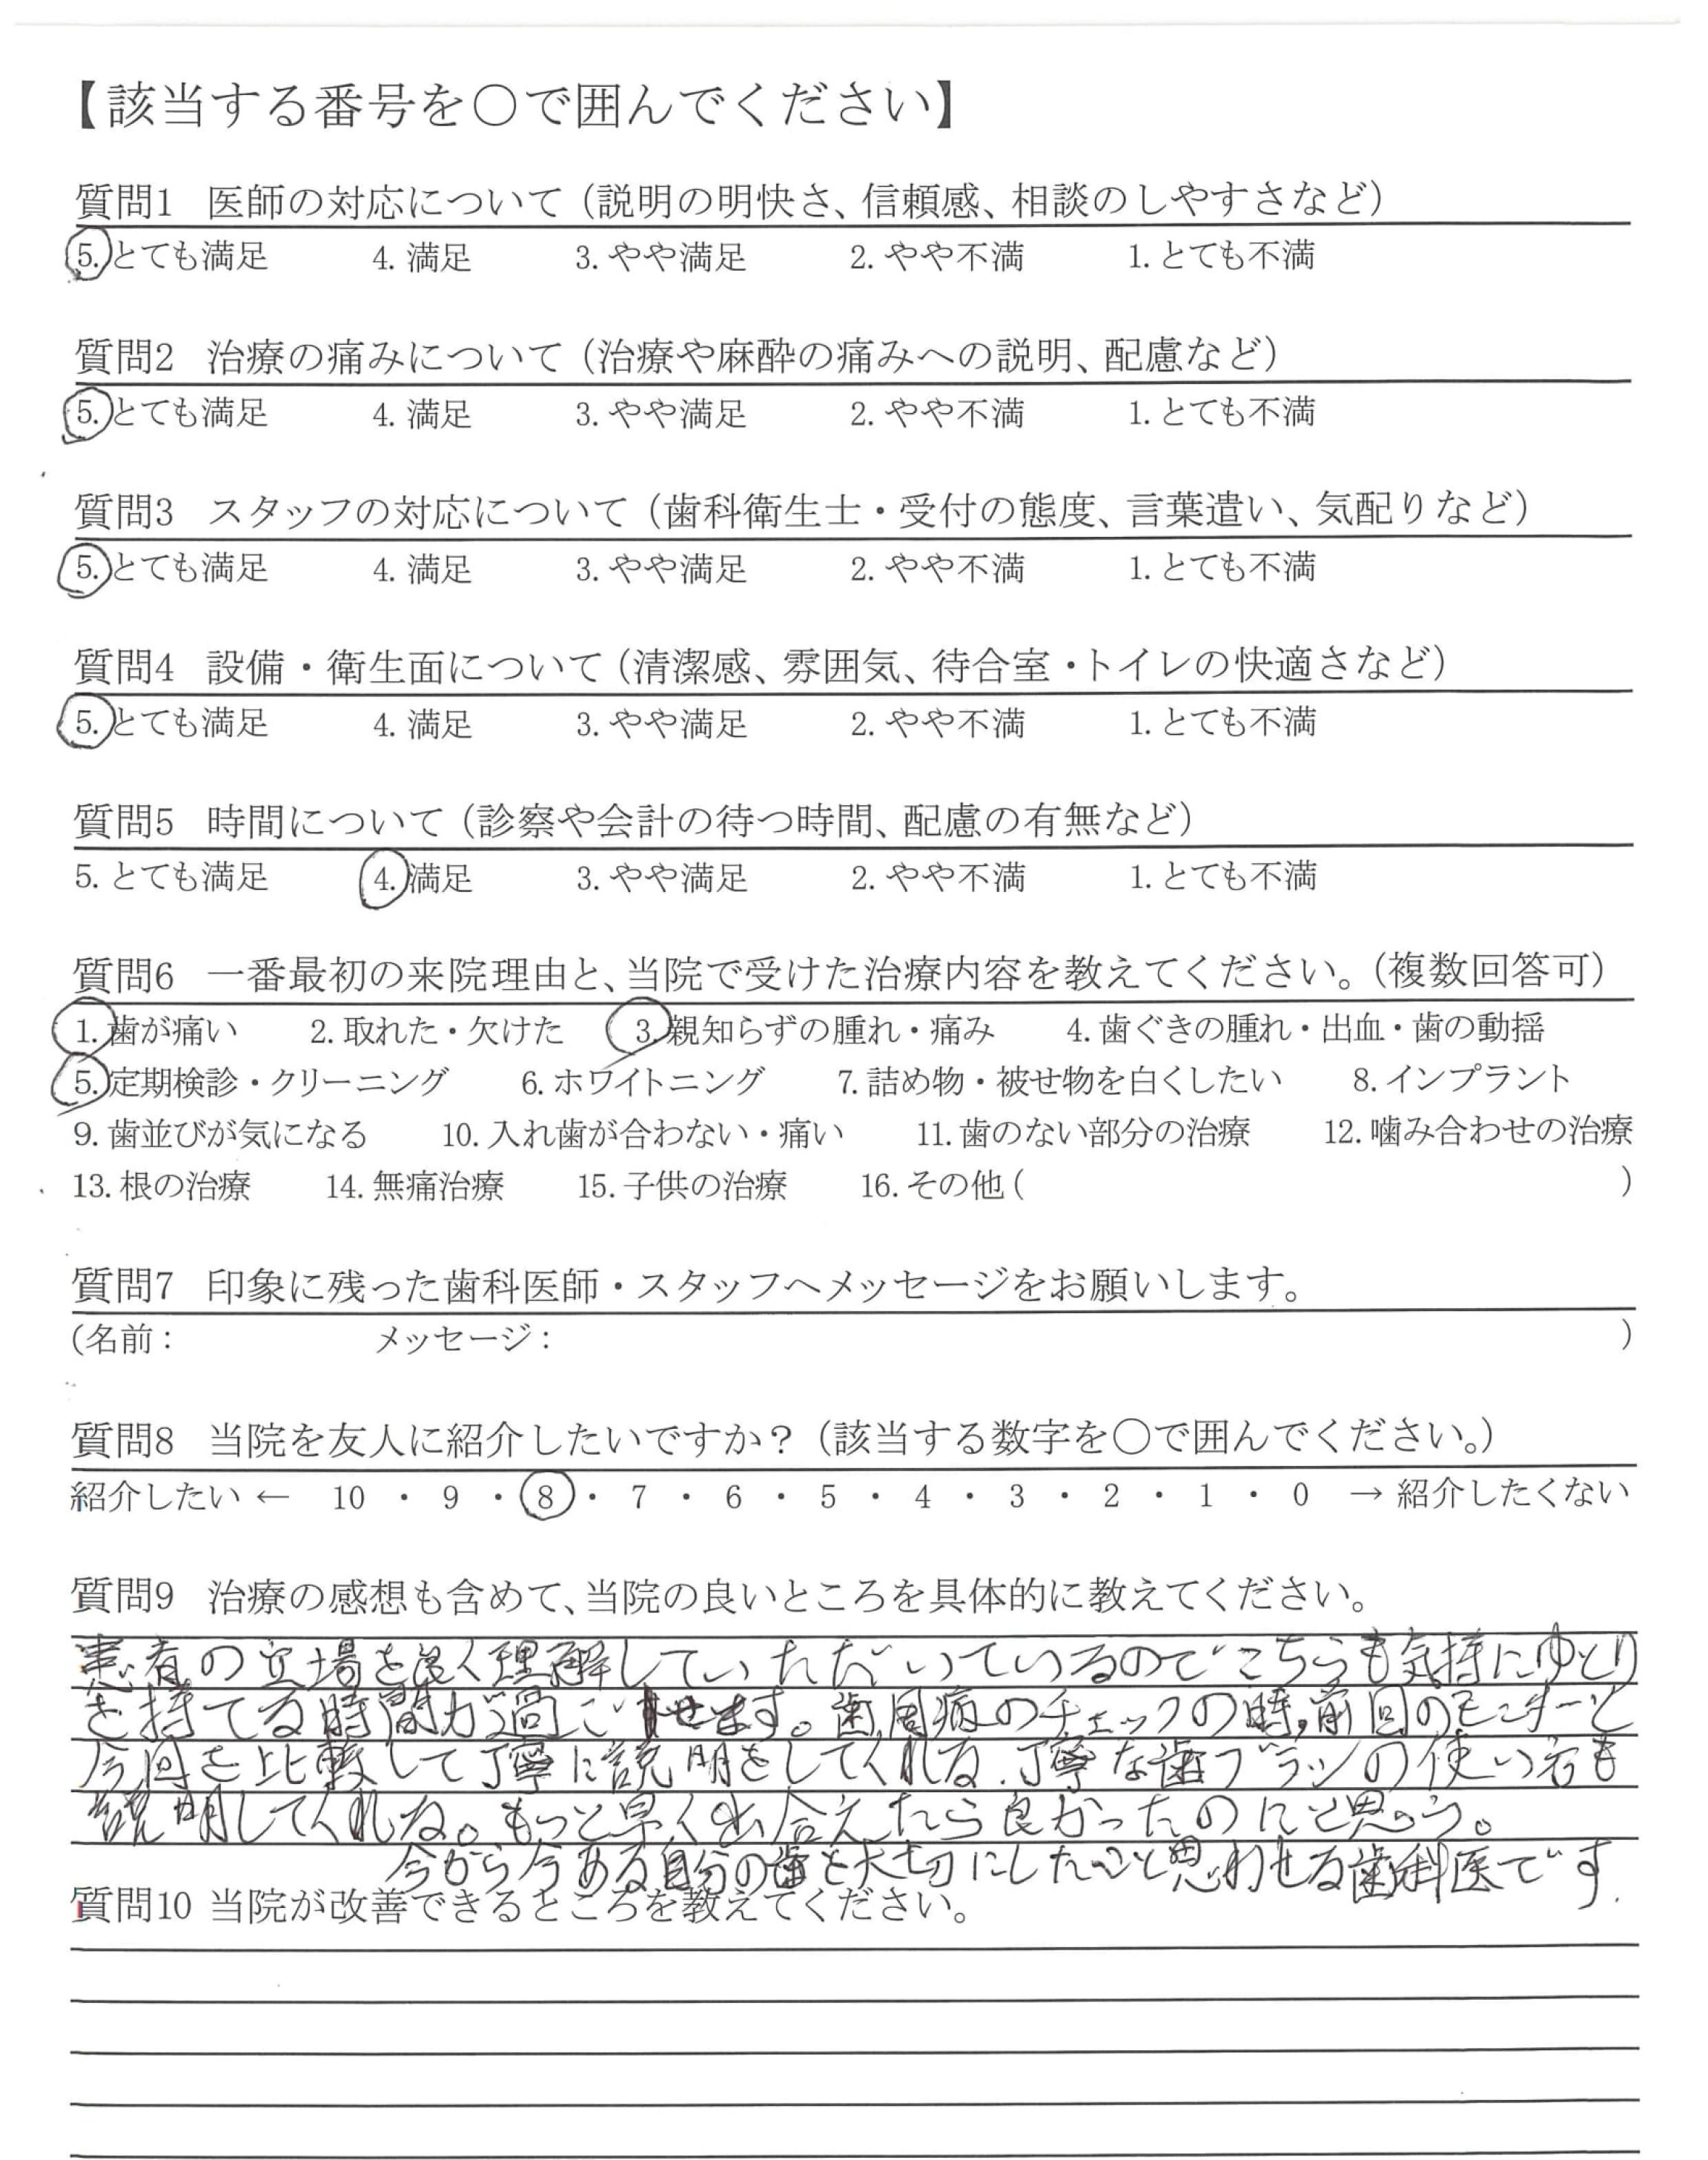 【該当する番号を○で囲んでください】
質問1 医師の対応について（説明の明快さ、信頼感、相談のしやすさなど）
5. とても満足 4. 満足 3. やや満足 2. やや不満 1. とても不満
質問2 治療の痛みについて（治療や麻酔の痛みへの説明、配慮など）
5. とても満足 4. 満足 3. やや満足 2. やや不満 1. とても不満
質問3 スタッフの対応について（歯科衛生士・受付の態度、言葉遣い、気配りなど）
5. とても満足 4. 満足 3. やや満足 2. やや不満 1. とても不満
質問4 設備・衛生面について（清潔感、雰囲気、待合室・トイレの快適さなど）
5. とても満足 4. 満足 3. やや満足 2. やや不満 1. とても不満
質問5 時間について（診察や会計の待つ時間、配慮の有無など）
5. とても満足 4. 満足 3. やや満足 2. やや不満 1. とても不満
質問6 一番最初の来院理由と、当院で受けた治療内容を教えてください。（複数回答可）
1. 歯が痛い 2. 取れた・欠けた 3. 親知らずの腫れ・痛み 4. 歯ぐきの腫れ・出血・歯の動揺
5. 定期検診・クリーニング 6. ホワイトニング 7. 詰め物・被せ物を白くしたい 8. インプラント
9. 歯並びが気になる 10. 入れ歯が合わない・痛い 11. 歯のない部分の治療 12. 噛み合わせの治療
13. 根の治療 14. 無痛治療 15. 子供の治療 16. その他（ ）
質問7 印象に残った歯科医師・スタッフへメッセージをお願いします。
（名前： メッセージ： ）
質問8 当院を友人に紹介したいですか？（該当する数字を○で囲んでください。）
紹介したい ← 10 ・ 9 ・ 8 ・ 7 ・ 6 ・ 5 ・ 4 ・ 3 ・ 2 ・ 1 ・ 0 → 紹介したくない
質問9 治療の感想も含めて、当院の良いところを具体的に教えてください。
患者の立場を良く理解していただいているのでこちらも気持にゆとり
を持てる時間が過ごせます。歯周病のチェックの時、前回のモニターと
今回を比較して丁寧に説明をしてくれる。丁寧な歯ブラシの使い方も
説明してくれる。もっと早く出合えたら良かったのにと思う。
今から今ある自分の歯を大切にしたいと思わせる歯科医です.
質問10 当院が改善できるところを教えてください。